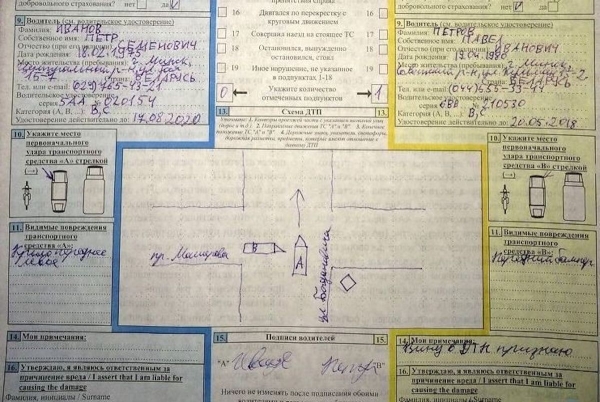 добровольного страхования? нет да
9. Водитель (см. водительское удостоверение)
Фамилия: ИВАНОВ
Собственное имя: ПЕТР
Отчество (при его наличии): СЕМЕНОВИЧ
Дата рождения: 18.02.1983
Место жительства (пребывания): г. Минск,
БЕЛАРУСЬ
Тел. или e-mail: (029) 765-43-21
Водительское удостоверение:
серия 5АА № 020154
Категория (А, В, ...): В, С
Удостоверение действительно до: 17.08.2020
10. Укажите место
первоначального
удара транспортного
средства «А» стрелкой
11. Видимые повреждения
транспортного
средства «А»:
Крыло переднее
левое
14. Мои примечания:
16. Утверждаю, я являюсь ответственным за
причинение вреда / I assert that I am liable for
causing the damage
Фамилия, инициалы / Surname
препятствия справа
16 Двигался по перекрестку с 16
круговым движением
17 Совершил наезд на стоящее ТС 17
18 Остановился, вынужденно 18
остановился, стоял
19 Иное нарушение, не указанное 19
в подпунктах 1-18
0 Укажите количество 1
отмеченных подпунктов
13. Схема ДТП 13.
пр. Машерова
В
А
ул. Богдановича
15. Подписи водителей
"А" "В"
Ничего не изменять после подписания обеими
добровольного страхования? нет да
9. Водитель (см. водительское удостоверение)
Фамилия: ПЕТРОВ
Собственное имя: ПАВЕЛ
Отчество (при его наличии): ИВАНОВИЧ
Дата рождения: 13.04.1980
Место жительства (пребывания): г. Минск,
Тел. или e-mail: (044) 655-33-44
Водительское удостоверение:
серия 6ВВ № 210530
Категория (А, В, ...): В, С
Удостоверение действительно до: 20.05.2018
10. Укажите место
первоначального
удара транспортного
средства «В» стрелкой
11. Видимые повреждения
транспортного
средства «В»:
Передний бампер
14. Мои примечания:
Вину в ДТП признаю
16. Утверждаю, я являюсь ответственным за
причинение вреда / I assert that I am liable for
causing the damage
Фамилия, инициалы / Surname